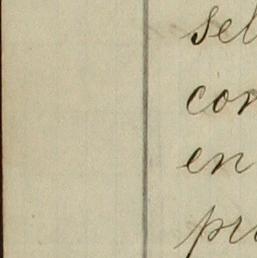 sel
con
en
pro